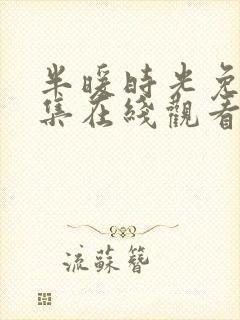 半暖時光免
集在綫觀看
流蘇簪